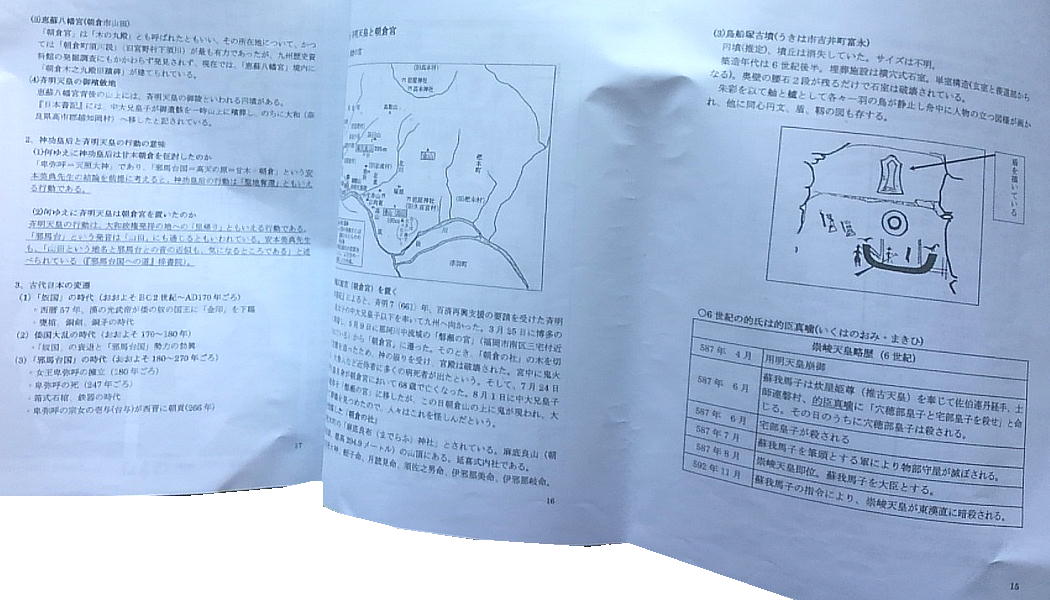 (3)恵蘇八幡宮(朝倉市山田)
「朝倉宮」は「木の丸殿」とも呼ばれたともいい、その所在地について、かつ
ては「朝倉町須川説」(旧宮野村下須川)が最も有力であったが、九州歴史資
料館の発掘調査にもかかわらず発見されず、現在では、「恵蘇八幡宮」境内に
「朝倉木之丸殿旧蹟碑」が建てられている。
(4)斉明天皇の御殯斂地
恵蘇八幡宮背後の山上には、斉明天皇の御陵といわれる円墳がある。
『日本書記』には、中大兄皇子が御遺骸を一時山上に殯葬し、のちに大和(奈
良県高市郡越知岡村)へ移したと記されている。
2、神功皇后と斉明天皇の行動の意味
(1)何ゆえに神功皇后は甘木朝倉を征討したのか
「卑弥呼=天照大神」であり、「邪馬台国=高天の原=甘木・朝倉」という安
本美典先生の結論を前提に考えると、神功皇后の行動は「聖地奪還」ともいえ
る行動である。
(2)何ゆえに斉明天皇は朝倉宮を置いたのか
斉明天皇の行動は、大和政権発祥の地への「里帰り」ともいえる行動である。
「邪馬台」という発音は「山田」にも通じるともいわれている。安本美典先生
も、「山田という地名と邪馬台との音の近似も、気になるところである」と述
べられている(『邪馬台国への道』梓書院)。
3、古代日本の変遷
(1)「奴国」の時代(おおよそBC2世紀~AD170年ごろ)
・西暦57年、漢の光武帝が倭の奴の国王に「金印」を下賜
・甕棺、銅剣、銅矛の時代
(2)倭国大乱の時代(おおよそ170~180年)
・「奴国」の衰退と「邪馬台国」勢力の勃興
(3)「邪馬台国」の時代(おおよそ180~270年ごろ)
・女王卑弥呼の擁立(180年ごろ)
・卑弥呼の死(247年ごろ)
・箱式石棺、鉄器の時代
・卑弥呼の宗女の壱与(台与)が西晋に朝貢(266年)
17
明天皇と朝倉宮
高木神社
杷木町
(旧杷木村)
(旧久喜宮村)
浮羽町
宮(朝倉宮)を置く
によると、斉明7(661)年、百済再興支援の要請を受けた斉明
中大兄皇子以下を率いて九州へ向かった。3月25日に博多の
5月9日に那珂川中流域の「磐瀬の宮」(福岡市南区三宅付近
から「朝倉宮」に遷った。そのとき、「朝倉の社」の木を切
を造ったため、神の振りを受け、宮殿は破壊された。宮中に鬼火
大舎人など近侍者に多くの病死者が出たという。そして、7月24日
身が朝倉宮において68歳で亡くなった。8月1日に中大兄皇子
「磐瀬の宮」に移したが、この日朝倉山の上に鬼が現われ、大
見つめたので、人々はこれを怪しんだという。
した「朝倉の社」
の「麻底良布(までらふ)神社」とされている。麻底良山(朝
標高294.9メートル)の山頂にある。延喜式内社である。
大神、蛭子命、月読見命、須佐之男命、伊邪那美命、伊邪那岐命。
16
(3)鳥船塚古墳(うきは市吉井町富永)
円墳(推定)。墳丘は消失していた。サイズは不明。
築造年代は6世紀後半。埋葬施設は横穴式石室。単室構造(玄室と羨道部から
なる)。奥壁の腰石2段が残るだけで石室は破壊されている。
朱彩を以て舳と艫として各々一羽の鳥が静止し舟中に人物の立つ図様が画か
れ、他に同心円文、盾、靱の図も存する。
盾を描いている
〇6世紀の的氏は的臣真噛(いくはのおみ・まきひ)
崇峻天皇略歴(6世紀)
587年 4月 用明天皇崩御
587年 6月 蘇我馬子は炊屋姫尊(推古天皇)を奉じて佐伯連丹経手、土
師連磐村、的臣真噛に「穴穂部皇子と宅部皇子を殺せ」と命
じる。その日のうちに穴穂部皇子は殺される。
587年 6月 宅部皇子が殺される
587年7月 蘇我馬子を筆頭とする軍により物部守屋が滅ぼされる。
587年8月 崇峻天皇即位。蘇我馬子を大臣とする。
592年11月 蘇我馬子の指令により、崇峻天皇が東漢直に暗殺される。
15